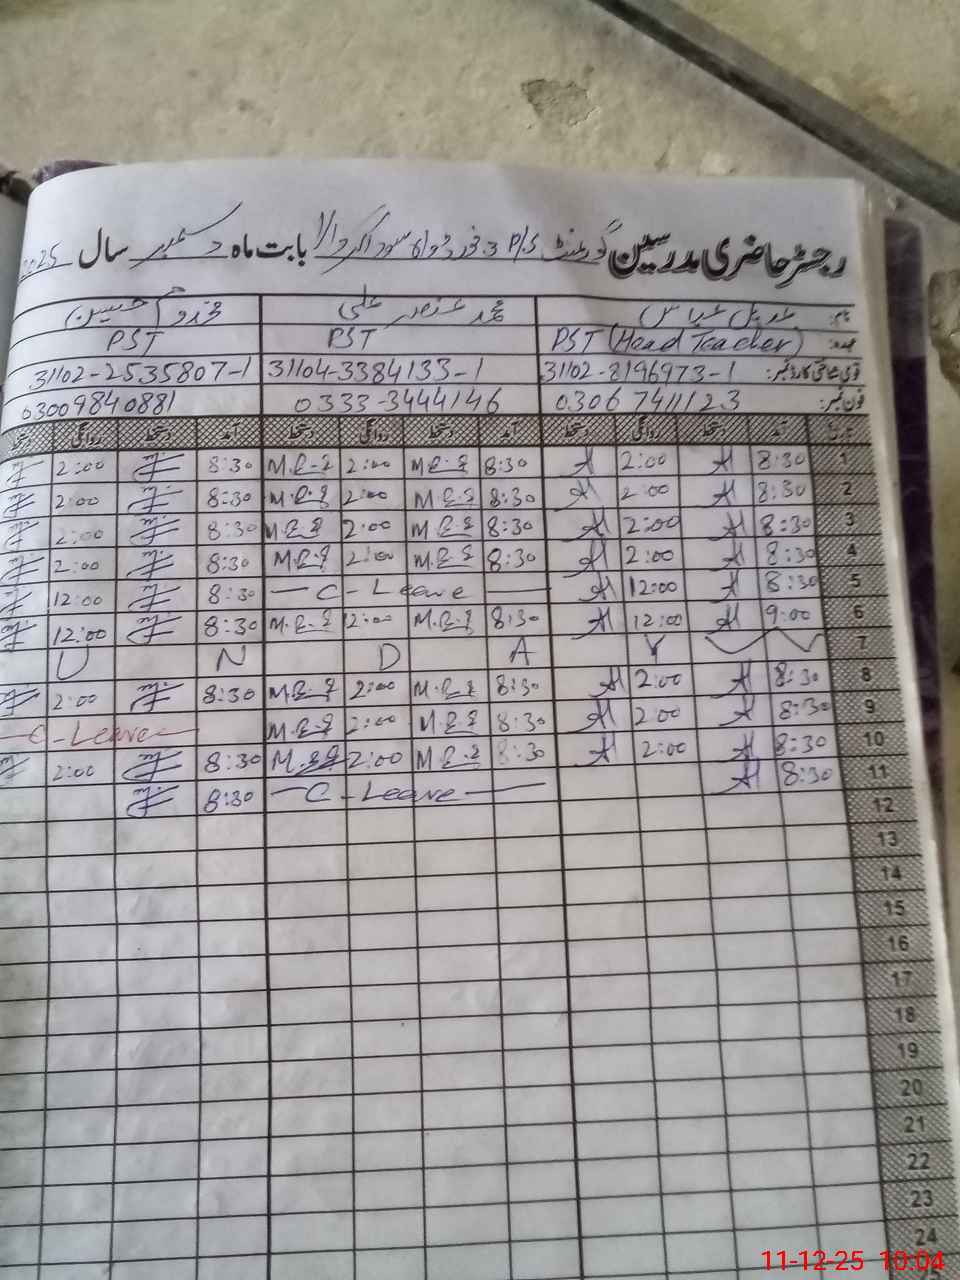 رجسٹر حاضری مدرسین گورنمنٹ P/S بابت ماہ دسمبر سال 2025
نام: عدیل عباس محمد عنصر علی مخدوم حسین
عہدہ: PST (Head Teacher) PST PST
قومی شناختی کارڈ نمبر: 31102-8196973-1 31104-3384133-1 31102-2535807-1
فون نمبر: 0306 7411123 0333-3444146 03009840881
تاریخ آمد دستخط روانگی دستخط آمد دستخط روانگی دستخط آمد دستخط روانگی دستخط
1 8:30 2:00 8:30 2:00 8:30 2:00
2 8:30 2:00 8:30 2:00 8:30 2:00
3 8:30 2:00 8:30 2:00 8:30 2:00
4 8:30 2:00 8:30 2:00 8:30 2:00
5 8:30 12:00 — C - Leave — 8:30 12:00
6 9:00 12:00 8:30 2:00 8:30 12:00
7 U N D A Y
8 8:30 2:00 8:30 2:00 8:30 2:00
9 8:30 2:00 8:30 2:00 — C - Leave —
10 8:30 2:00 8:30 2:00 8:30 2:00
11 8:30 — C - Leave — 8:30
12
13
14
15
16
17
18
19
20
21
22
23
24
25
11-12-25 10:04